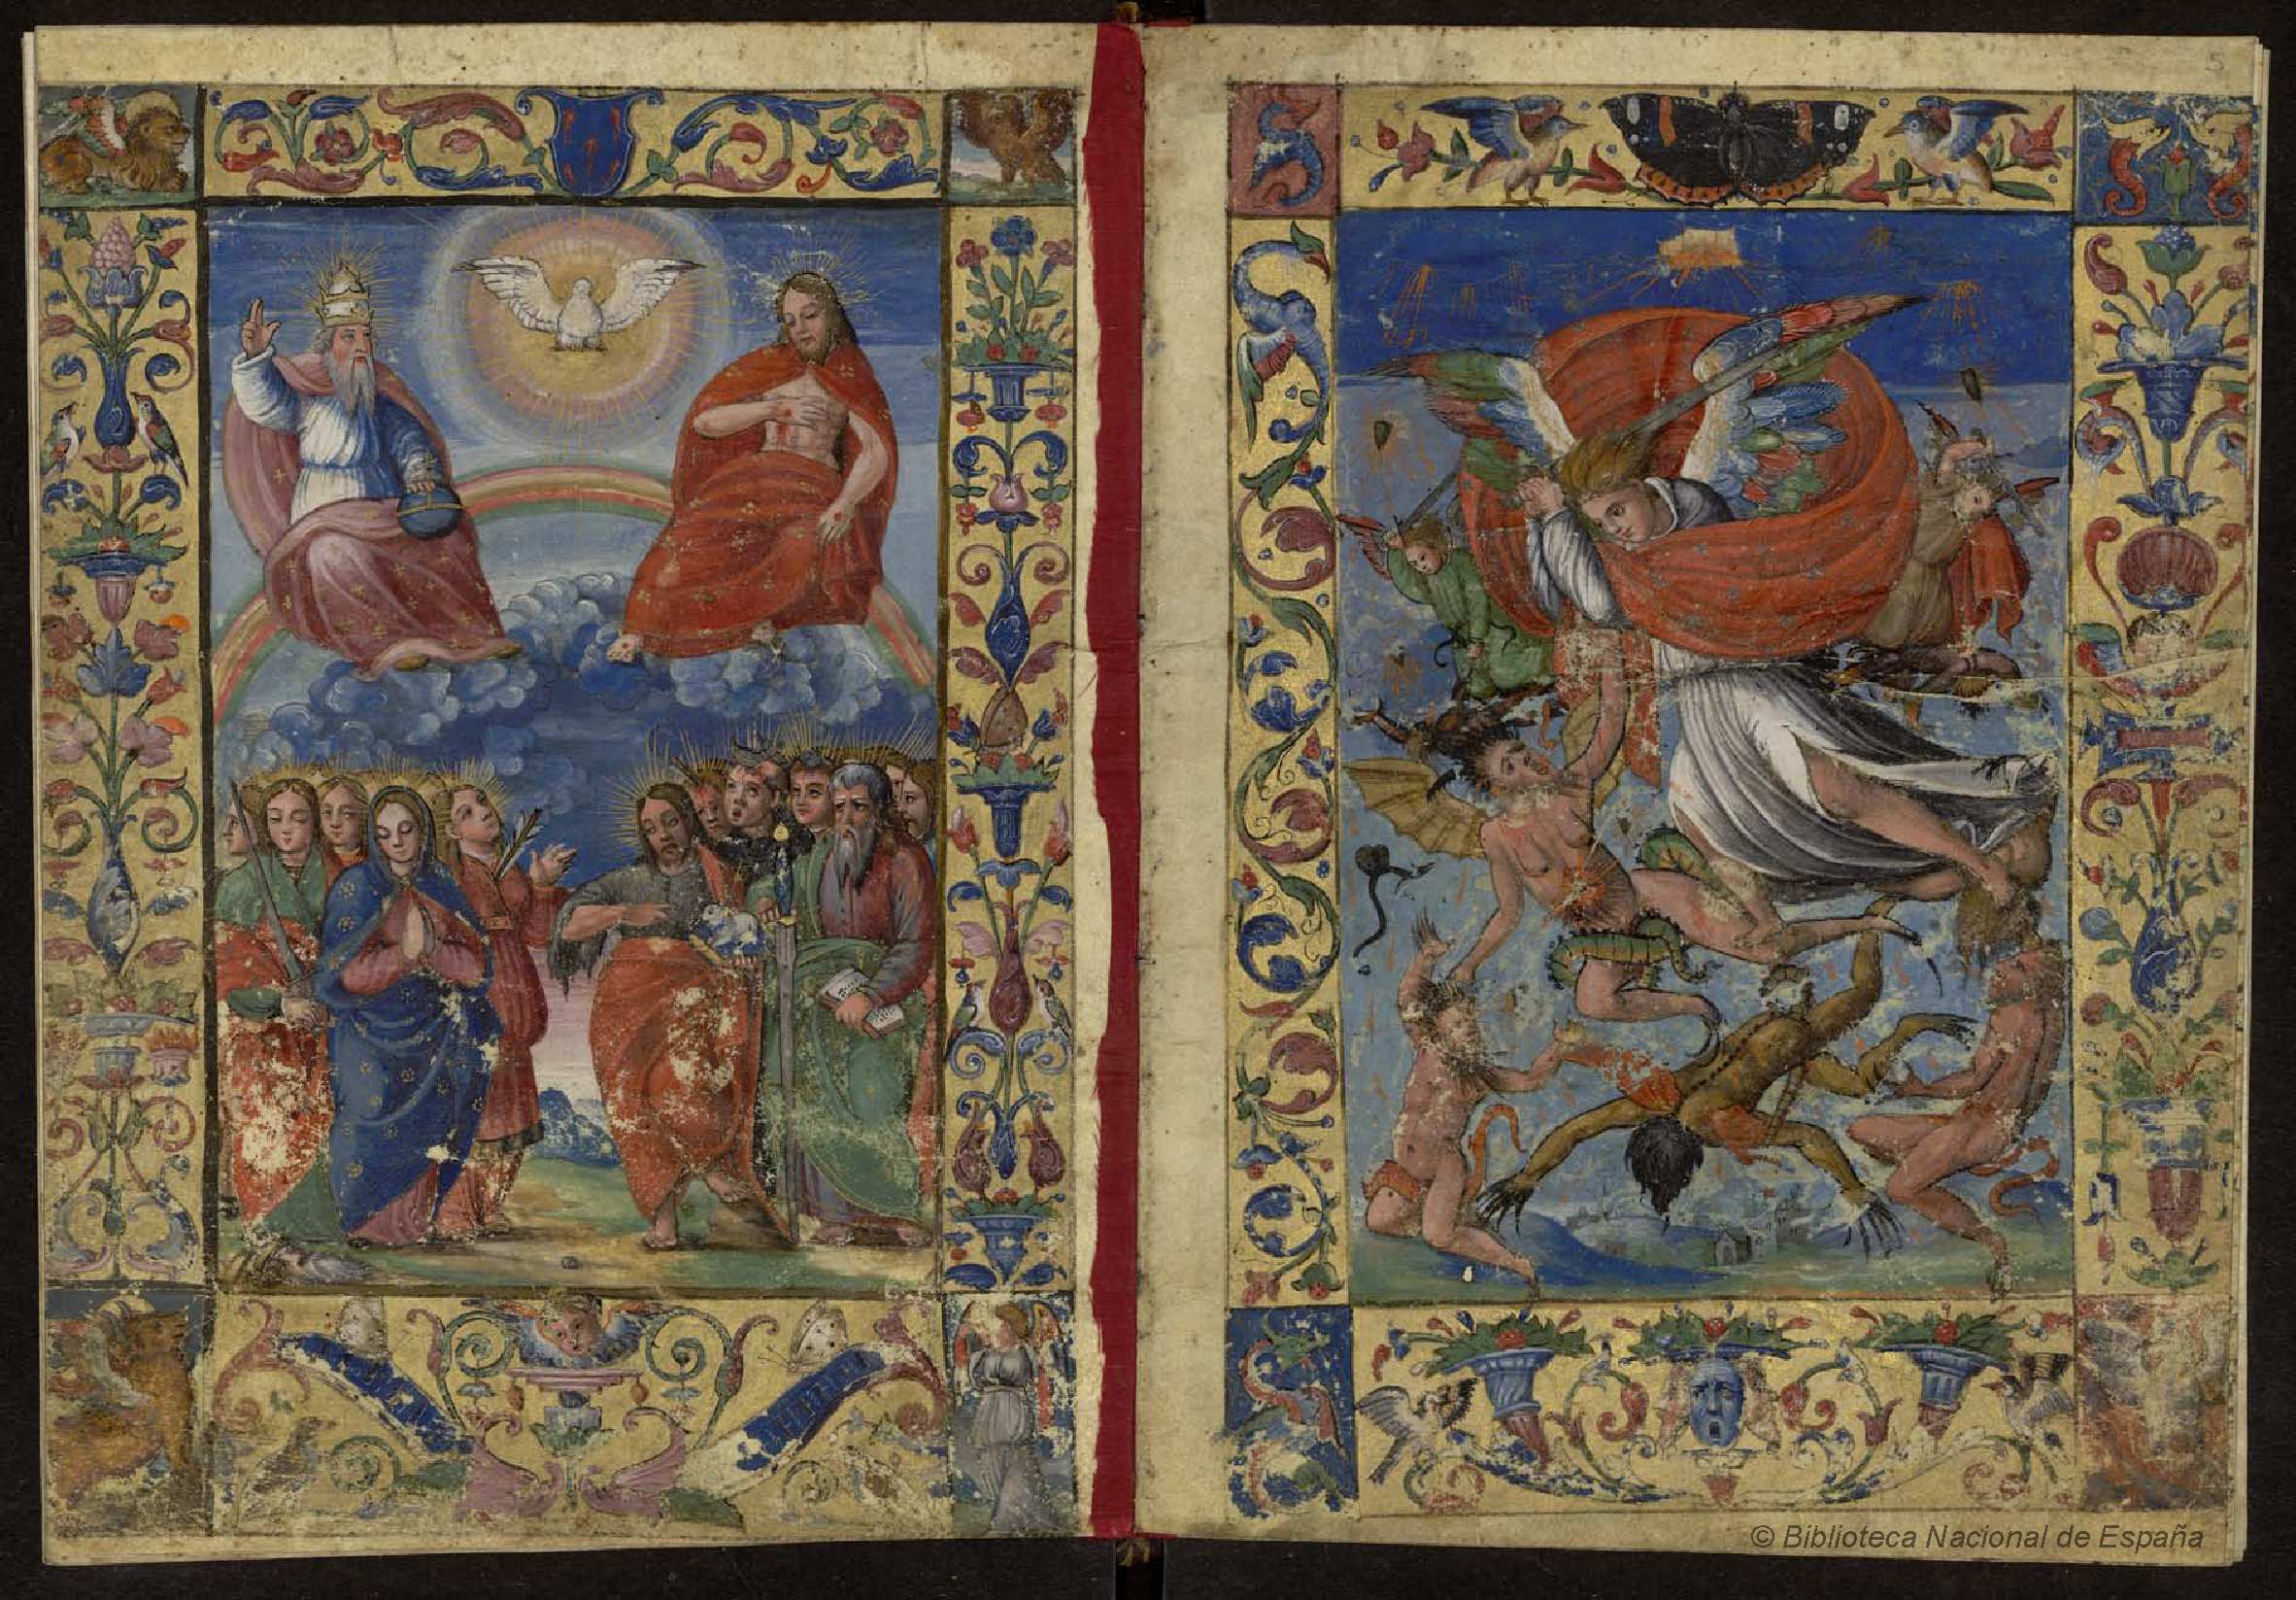 5
© Biblioteca Nacional de España